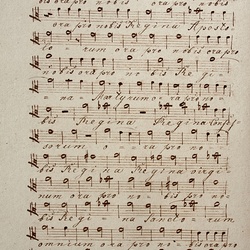 bis ora pro nobis ora pro nobis
ora pro nobis Regina Aposto
lorum ora pro nobis ora pro
nobis ora pro no bis Re gi
na Martyrum ora pro no
bis Regina Regina Confes
sorum o ra pro no
bis Regina Regina virgi
num ora pro no bis
Re gi na sancto rum
omnium ora pro nobis ora pro